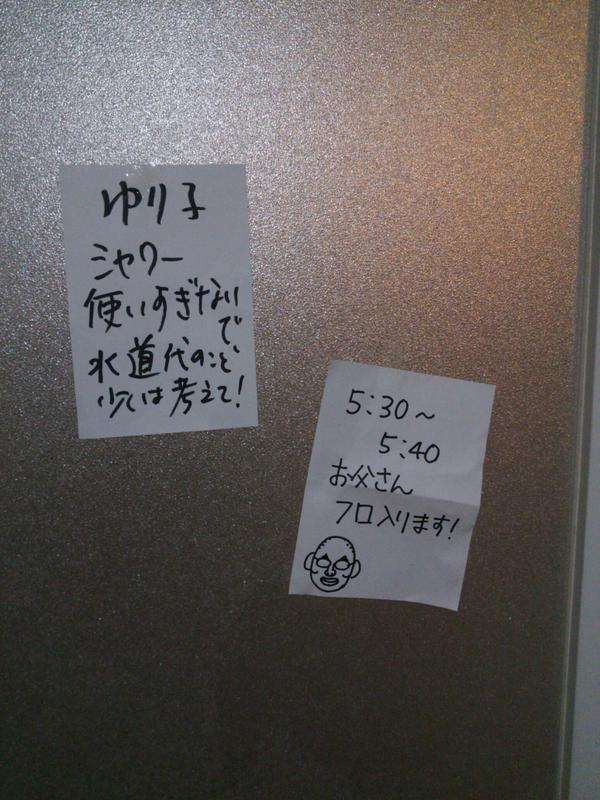 ゆり子
シャワー
使いすぎない
で
水道代のこと
少しは考えて!
5:30~
5:40
お父さん
フロ入ります!